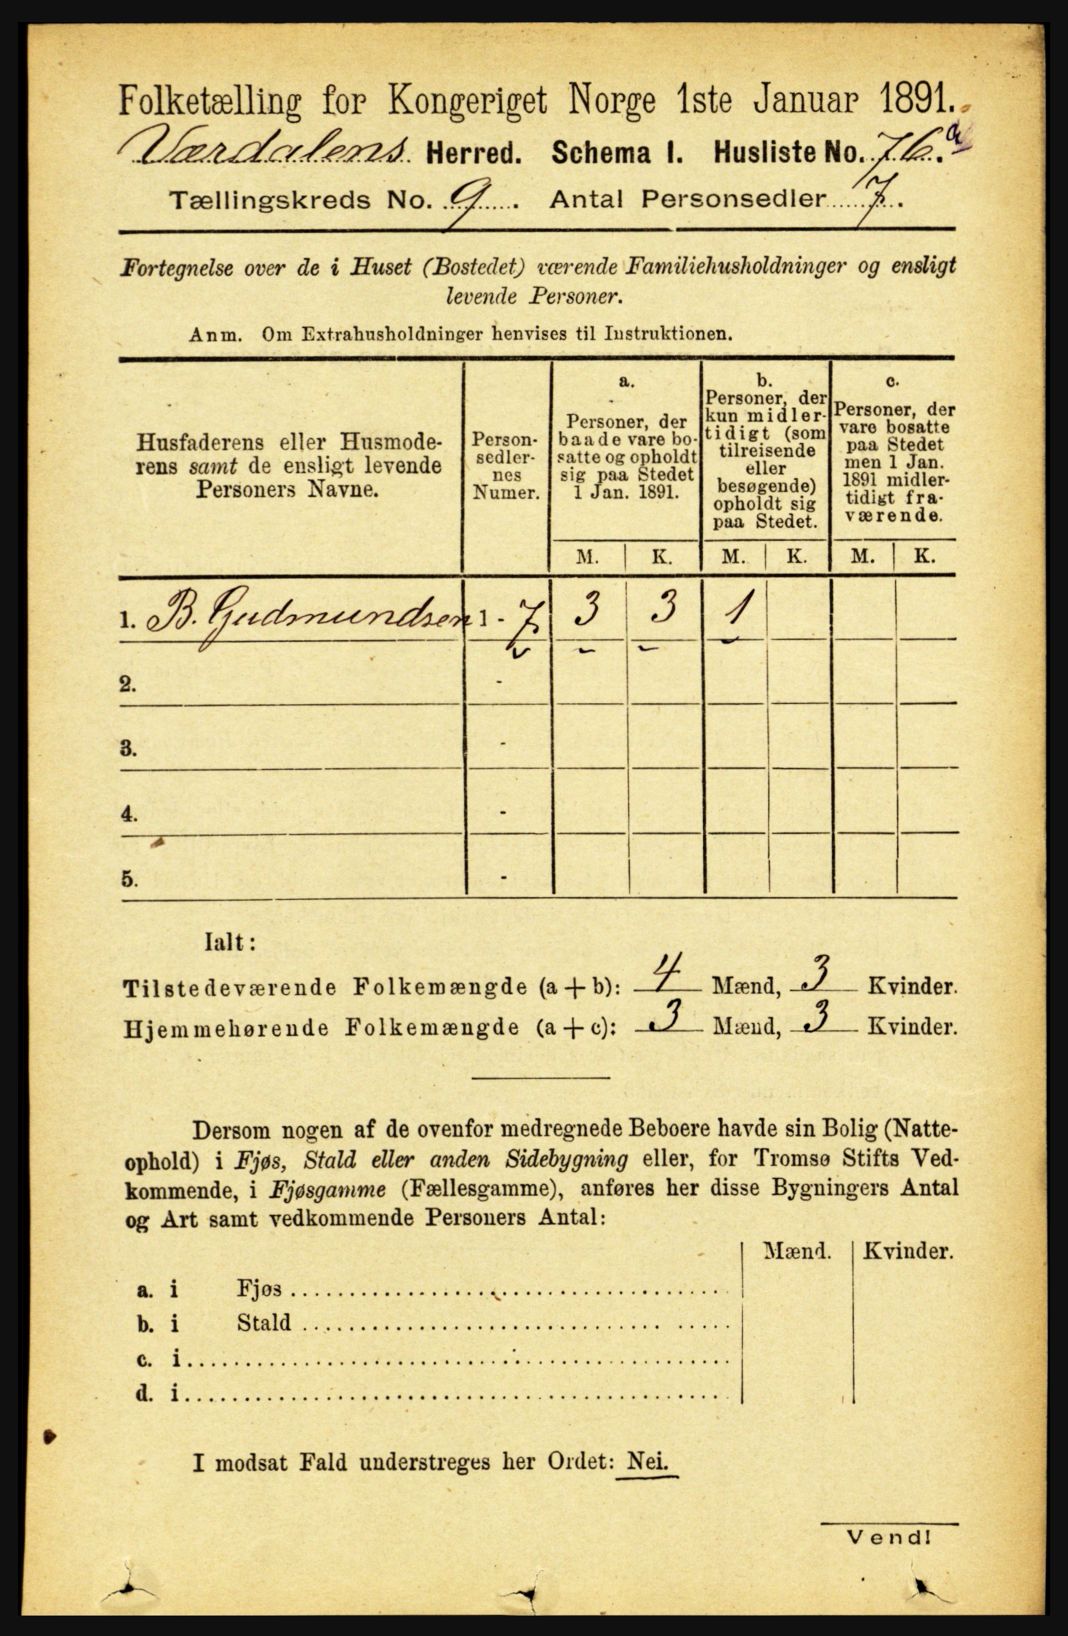 Folketælling for Kongeriget Norge 1ste Januar 1891.
Værdalens Herred. Schema I. Husliste No. 76. a
Tællingskreds No. 9. Antal Personsedler 7.
Fortegnelse over de i Huset (Bostedet) værende Familiehusholdninger og ensligt
levende Personer.
Anm. Om Extrahusholdninger henvises til Instruktionen.
Husfaderens eller Husmode-
rens samt de ensligt levende
Personers Navne.
Person-
sedler-
nes
Numer.
a.
Personer, der
baade vare bo-
satte og opholdt
sig paa Stedet
1 Jan. 1891.
b.
Personer, der
kun midler-
tidigt (som
tilreisende
eller
besøgende)
opholdt sig
paa Stedet.
c.
Personer, der
vare bosatte
paa Stedet
men 1 Jan.
1891 midler-
tidigt fra-
værende.
M. K. M. K. M. K.
1. B. Gudmundsen 1 - 7 3 3 1
2. -
3. -
4. -
5. -
Ialt:
Tilstedeværende Folkemængde (a + b): 4 Mænd, 3 Kvinder.
Hjemmehørende Folkemængde (a + c): 3 Mænd, 3 Kvinder.
Dersom nogen af de ovenfor medregnede Beboere havde sin Bolig (Natte-
ophold) i Fjøs, Stald eller anden Sidebygning eller, for Tromsø Stifts Ved-
kommende, i Fjøsgamme (Fællesgamme), anføres her disse Bygningers Antal
og Art samt vedkommende Personers Antal:
Mænd. Kvinder.
a. i Fjøs
b. i Stald
c. i
d. i
I modsat Fald understreges her Ordet: Nei.
Vend!